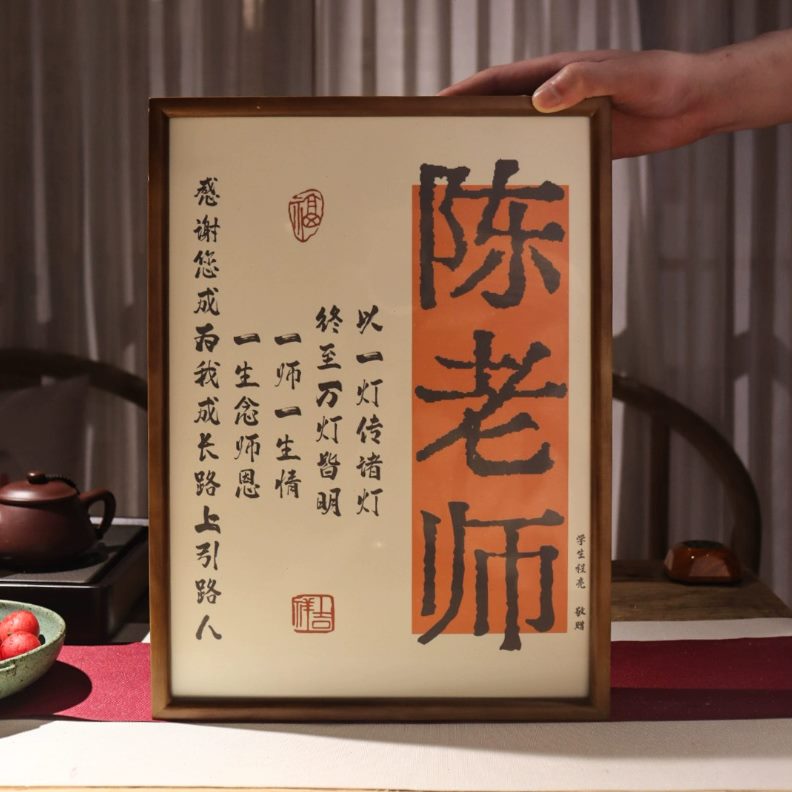 陈老师
学生程亮 敬赠
以一灯传诸灯
终至万灯皆明
一师一生情
一生念师恩
感谢您成为我成长路上引路人
福
吉祥